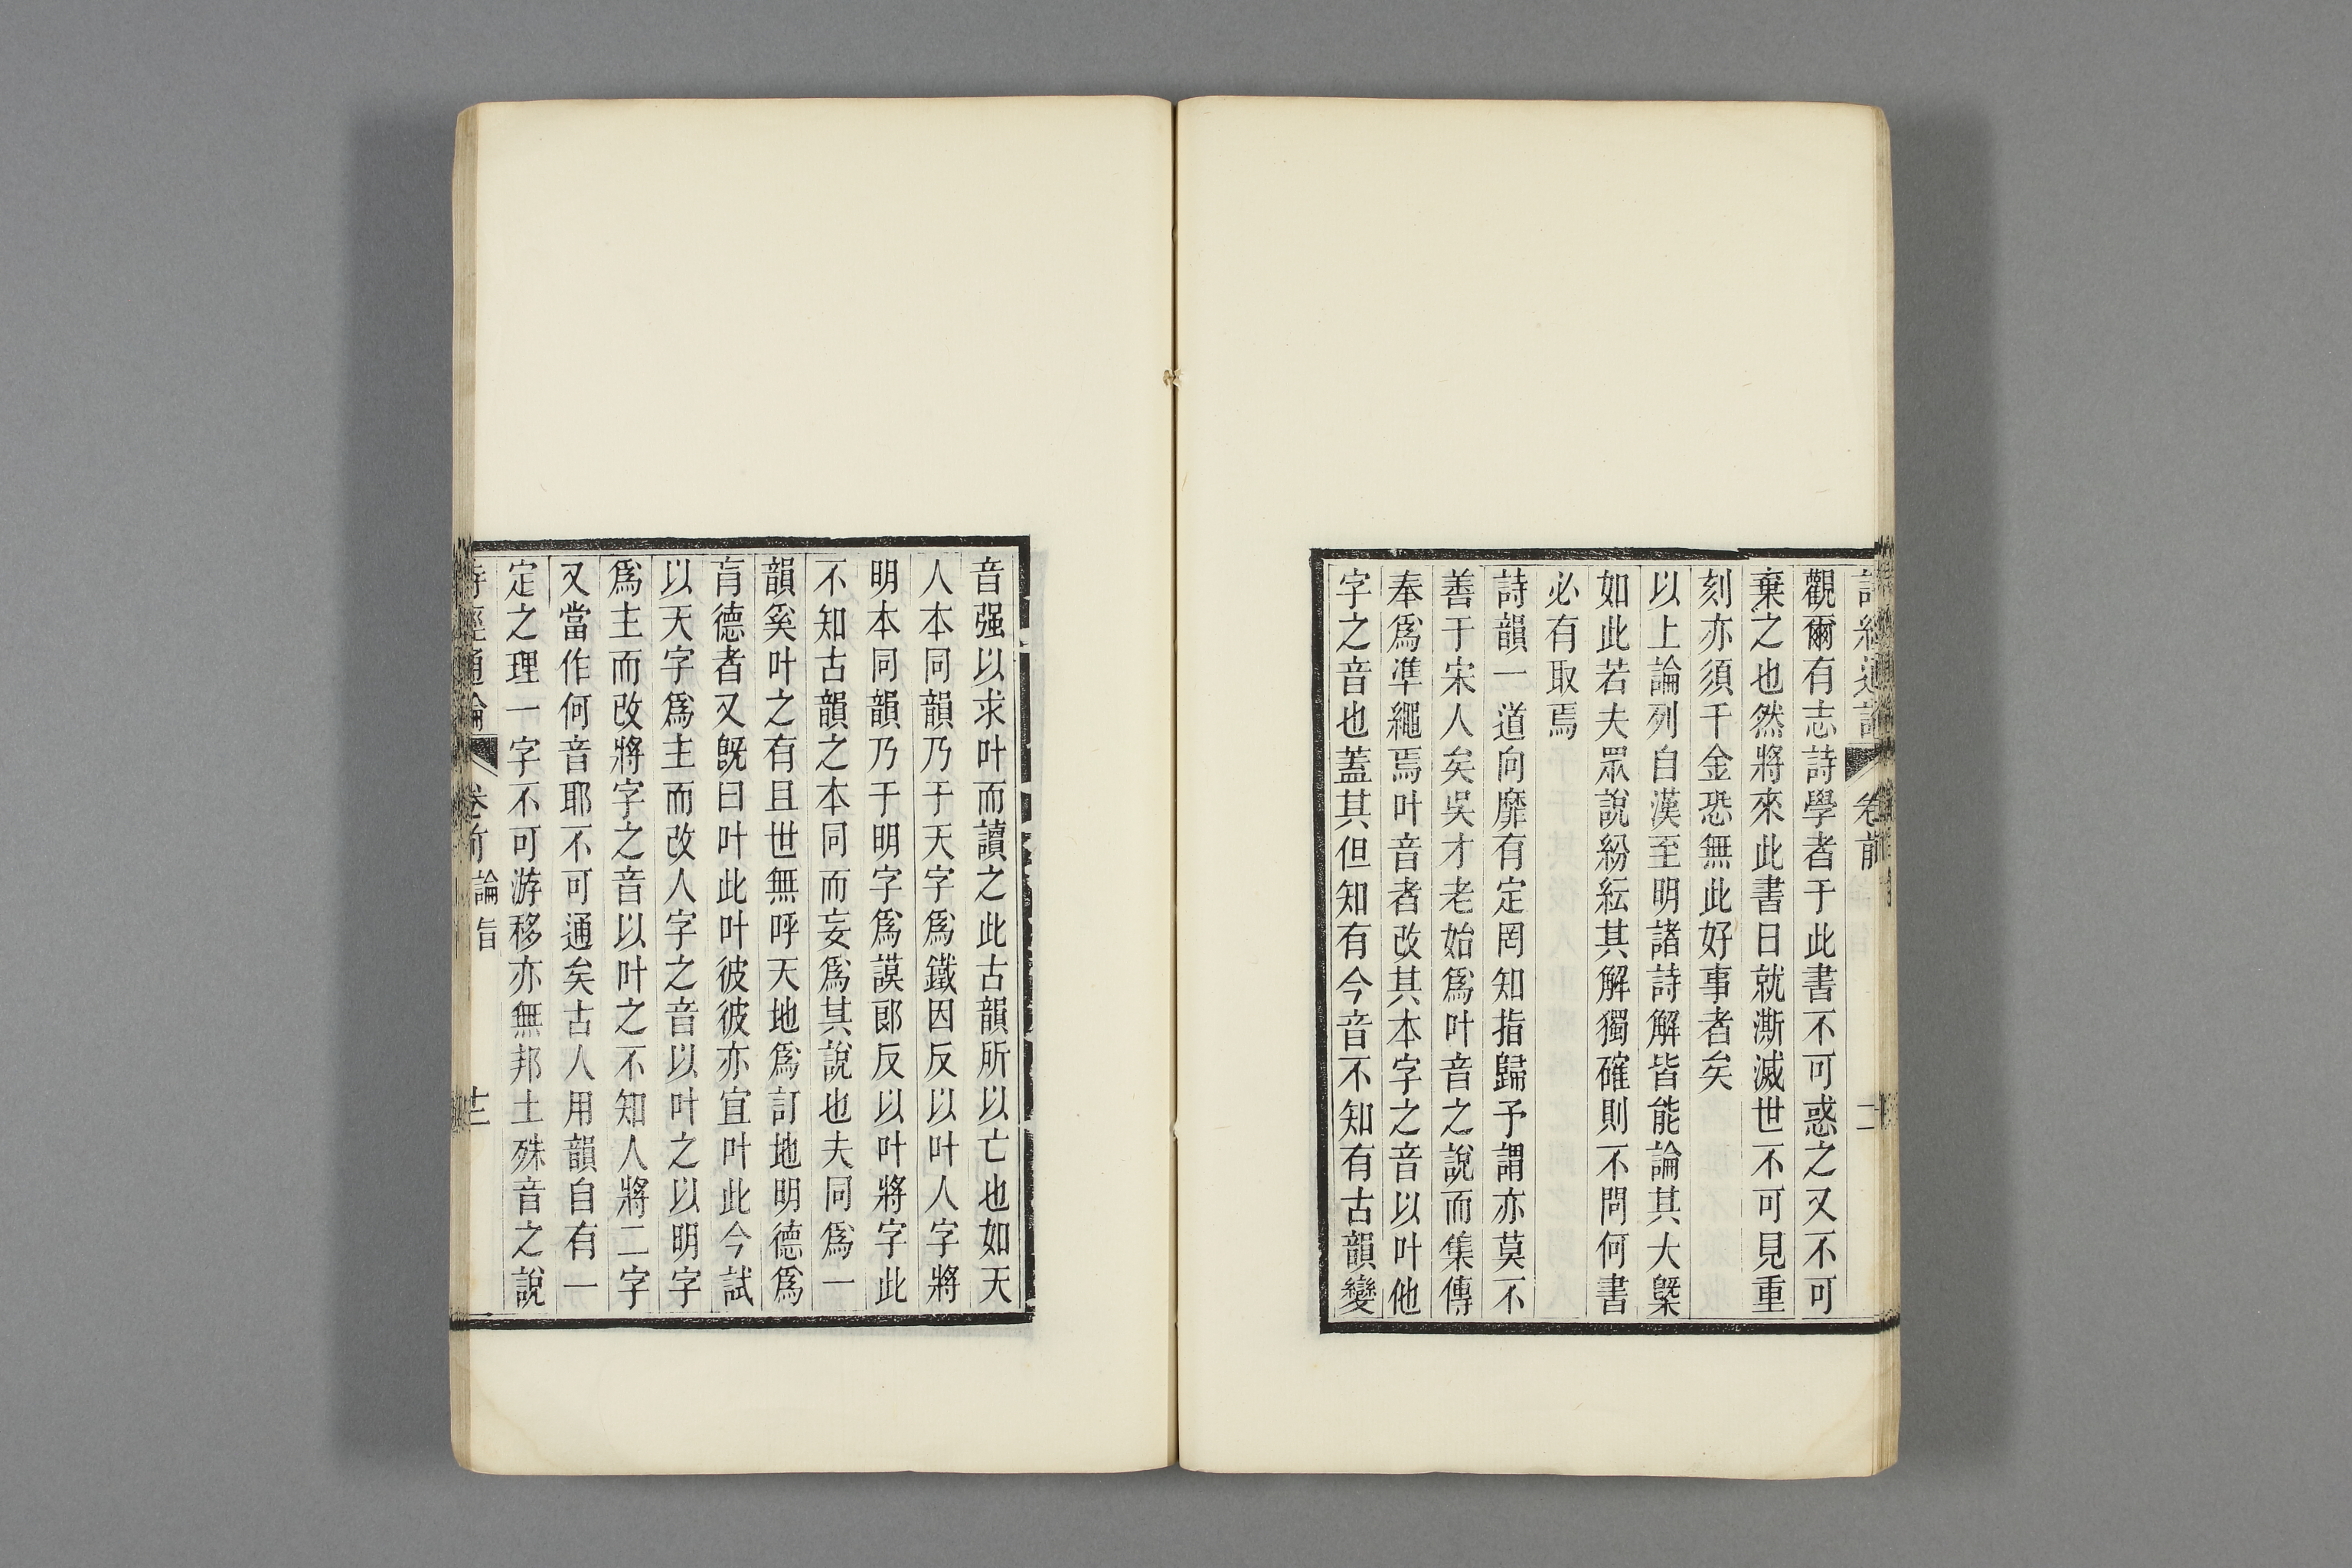 觀爾有志詩學者于此書不可惑之又不可
棄之也然將來此書日就澌滅世不可見重
刻亦須千金恐無此好事者矣
以上論列自漢至明諸詩解皆能論其大槩
如此若夫眾說紛紜其解獨確則不問何書
必有取焉
詩韻一道向靡有定罔知指歸予謂亦莫不
善于宋人矣吳才老始爲叶音之說而集傳
奉爲準繩焉叶音者改其本字之音以叶他
字之音也蓋其但知有今音不知有古韻變
音强以求叶而讀之此古韻所以亡也如天
人本同韻乃于天字爲鐵因反以叶人字將
明本同韻乃于明字爲謨郎反以叶將字此
不知古韻之本同而妄爲其說也夫同爲一
韻奚叶之有且世無呼天地爲訂地明德爲
肓德者又旣曰叶此叶彼彼亦宜叶此今試
以天字爲主而改人字之音以叶之以明字
爲主而改將字之音以叶之不知人將二字
又當作何音耶不可通矣古人用韻自有一
定之理一字不可游移亦無邦土殊音之說
詩經通論 卷前 論旨 十二